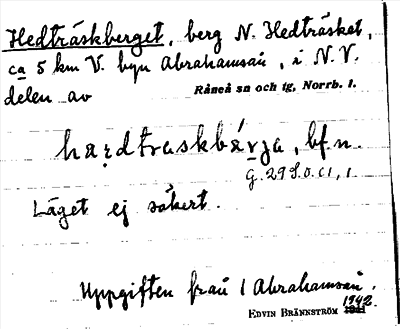 Hedträskberget, berg N. Hedträsket,
ca 5 km V. byn Abrahamsån, i N.V.
delen av Råneå sn och tg, Norrb. l.
haṛdtraskbärja, bf. n.
Läget ej säkert.
Uppgiften från 1 Abrahamsån.
EDVIN BRÄNNSTRÖM 1942